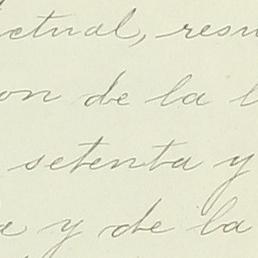 ctual, resu
on de la l
setenta y
a y de la